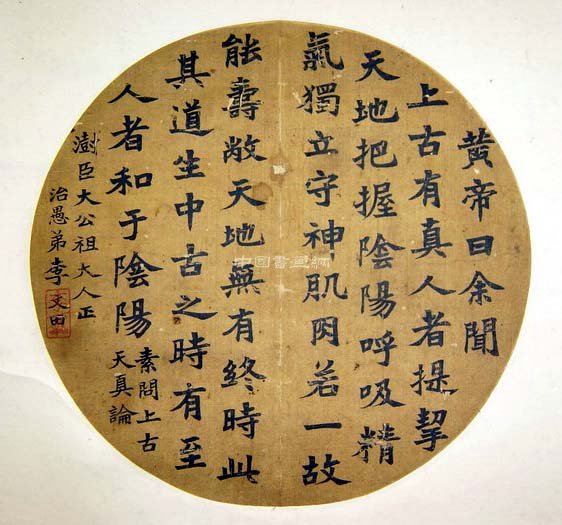 黄帝曰余聞
上古有真人者提挈
天地把握陰陽呼吸精
氣獨立守神肌肉若一故
能壽敝天地無有終時此
其道生中古之時有至
人者和于陰陽
素問上古
天真論
澍臣大公祖大人正
治愚弟李
文田
中國書畫網